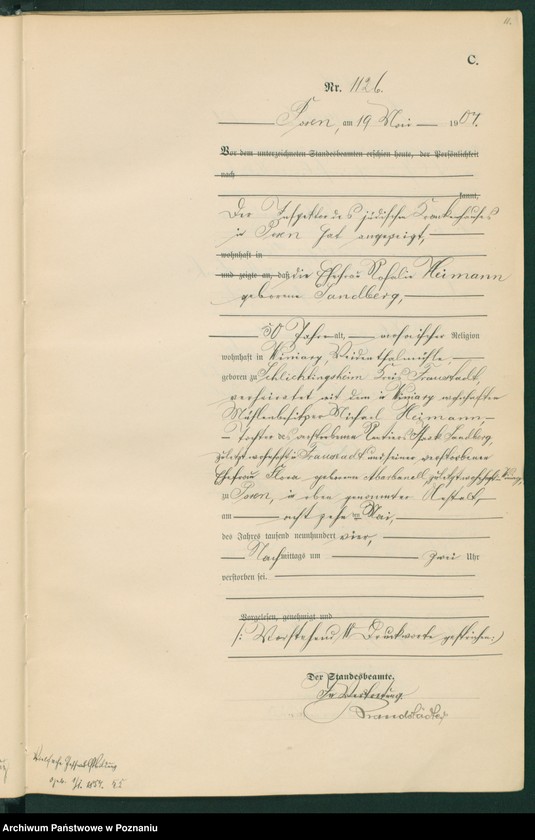 11.
C.
Nr. 1126.
Posen, am 19 Mai 1904.
Vor dem unterzeichneten Standesbeamten erschien heute, der Persönlichkeit
nach
kannt,
Der Inspektor des jüdischen Krankenhauses
in Posen hat angezeigt,
wohnhaft in
und zeigte an, daß die Ehefrau Rosalie Heimann
geborene Sandberg,
50 Jahre alt, mosaischer Religion
wohnhaft in
geboren zu Schlichtingsheim Kreis Fraustadt,
verheirathet mit dem in wohnhaften
Mühlenbesitzer Michael Heimann,
Tochter des verstorbenen Rentiers Sandberg,
zuletzt wohnhaft in Fraustadt und seiner verstorbenen
Ehefrau Flora geborene zuletzt wohnhaft in
zu Posen, in oben genannter Anstalt,
am acht zehn ten Mai,
des Jahres tausend neunhundert vier,
Nachmittags um zwei Uhr
verstorben sei.
Vorgelesen, genehmigt und
(: Vorstehend 11 Druckworte gestrichen:)
Der Standesbeamte.
In Vertretung
Archiwum Państwowe w Poznaniu